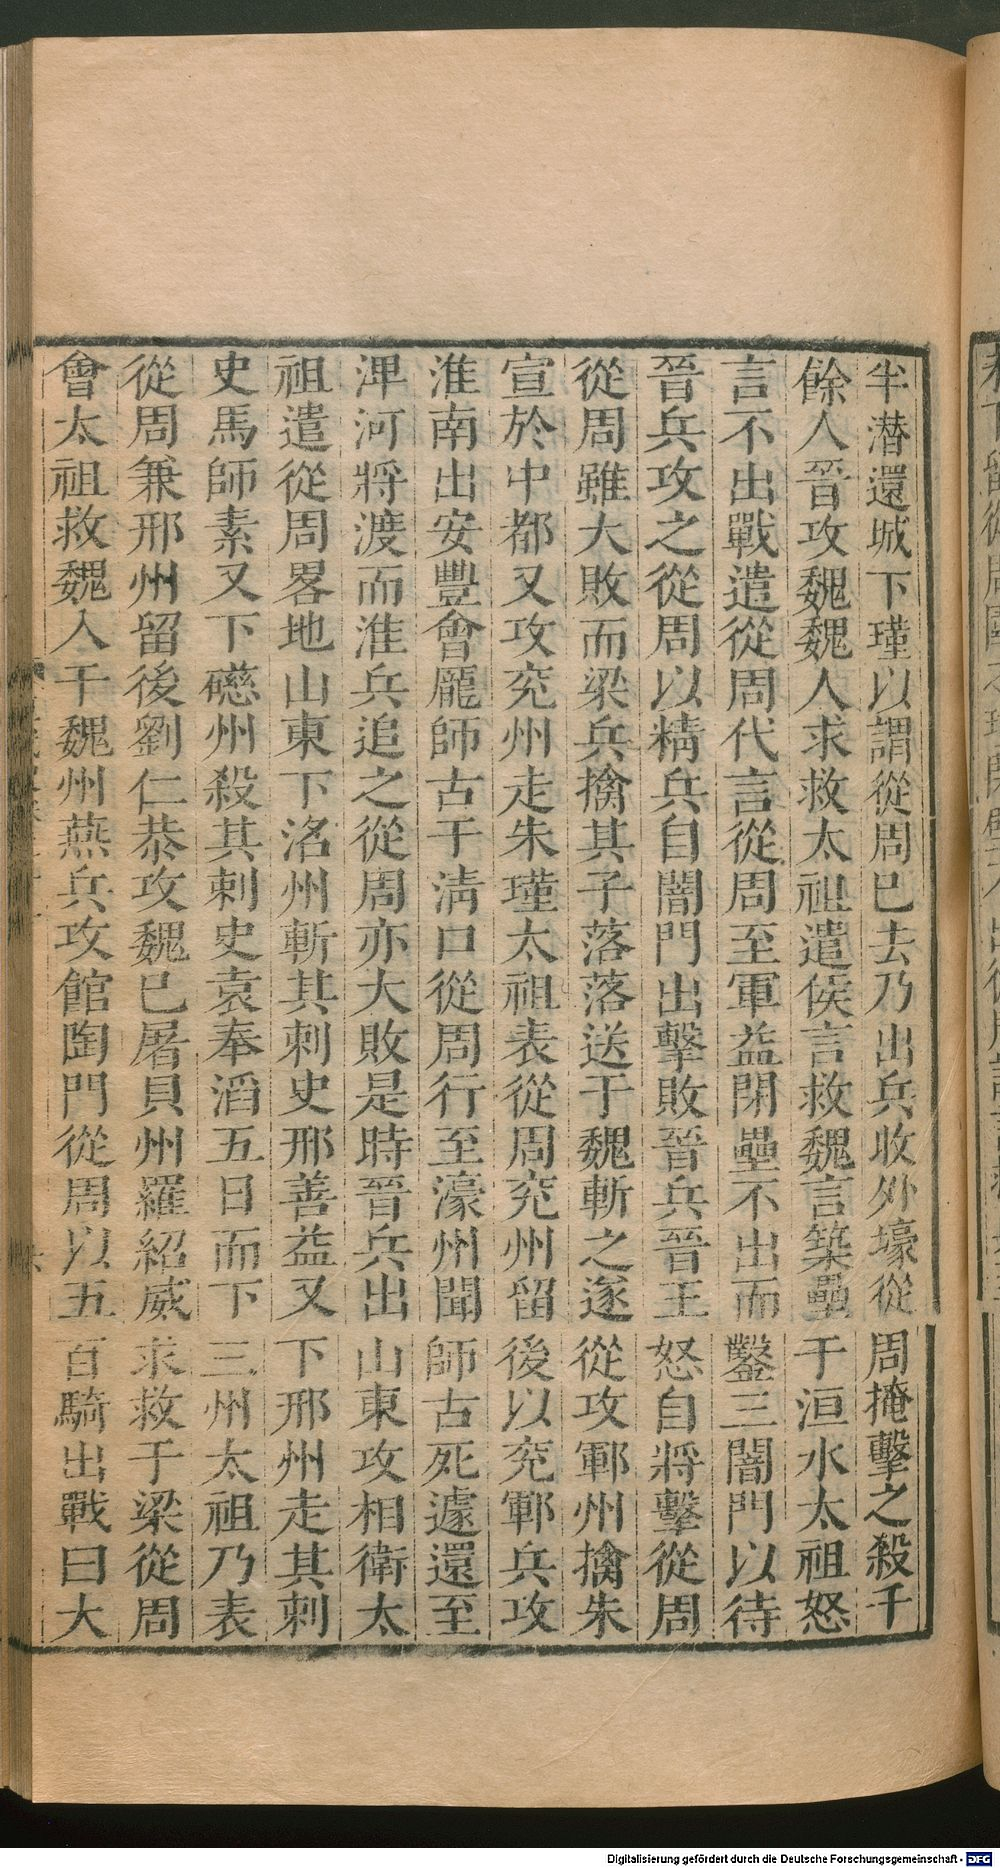 半潜還城下瑾以謂從周已去乃出兵收外壕從周掩擊之殺千
餘人晉攻魏魏人求救太祖遣侯言救魏言築壘于洹水太祖怒
言不出戰遣從周代言從周至軍益閉壘不出而鑿三闇門以待
晉兵攻之從周以精兵自闇門出擊敗晉兵晉王怒自將擊從周
從周雖大敗而梁兵擒其子落落送于魏斬之遂從攻鄆州擒朱
宣於中都又攻兖州走朱瑾太祖表從周兖州留後以兖鄆兵攻
淮南出安豐會龐師古于清口從周行至濠州聞師古死遽還至
渒河將渡而淮兵追之從周亦大敗是時晉兵出山東攻相衛太
祖遣從周畧地山東下洺州斬其刺史邢善益又下邢州走其刺
史馬師素又下礠州殺其刺史袁奉滔五日而下三州太祖乃表
從周兼邢州留後劉仁恭攻魏已屠貝州羅紹威求救于梁從周
會太祖救魏入于魏州燕兵攻館陶門從周以五百騎出戰曰大
Digitalisierung gefördert durch die Deutsche Forschungsgemeinschaft - DFG